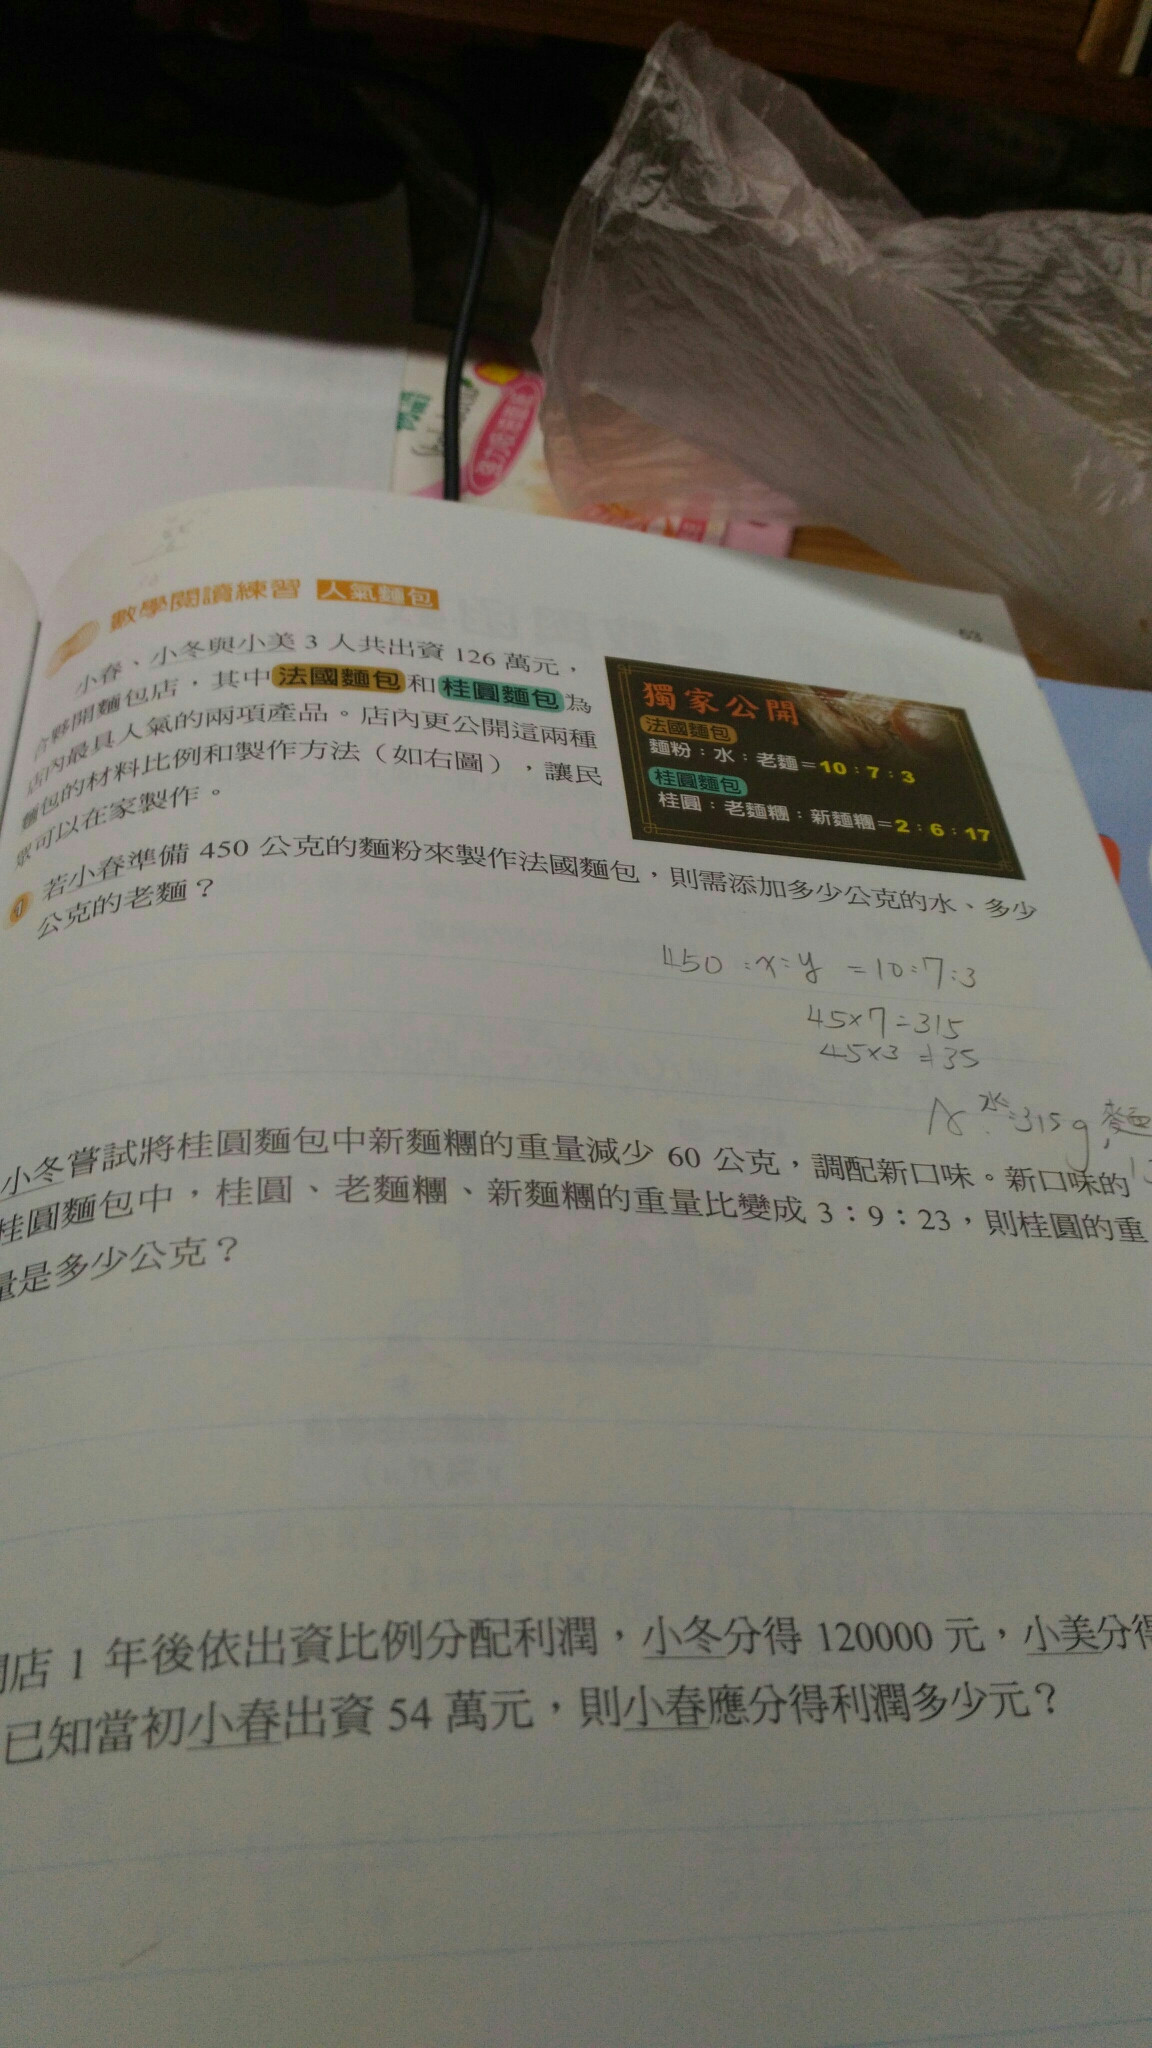 53
數學閱讀練習 人氣麵包
小春、小冬與小美 3 人共出資 126 萬元，
合夥開麵包店，其中法國麵包和桂圓麵包為
店內最具人氣的兩項產品。店內更公開這兩種
麵包的材料比例和製作方法（如右圖），讓民
眾可以在家製作。
獨家公開
法國麵包
麵粉：水：老麵＝10：7：3
桂圓麵包
桂圓：老麵糰：新麵糰＝2：6：17
1 若小春準備 450 公克的麵粉來製作法國麵包，則需添加多少公克的水、多少
公克的老麵？
450:x:y=10:7:3
45×7=315
45×3=135
A:水=315g,麵
小冬嘗試將桂圓麵包中新麵糰的重量減少 60 公克，調配新口味。新口味的
桂圓麵包中，桂圓、老麵糰、新麵糰的重量比變成 3：9：23，則桂圓的重
量是多少公克？
開店 1 年後依出資比例分配利潤，小冬分得 120000 元，小美分得
已知當初小春出資 54 萬元，則小春應分得利潤多少元？